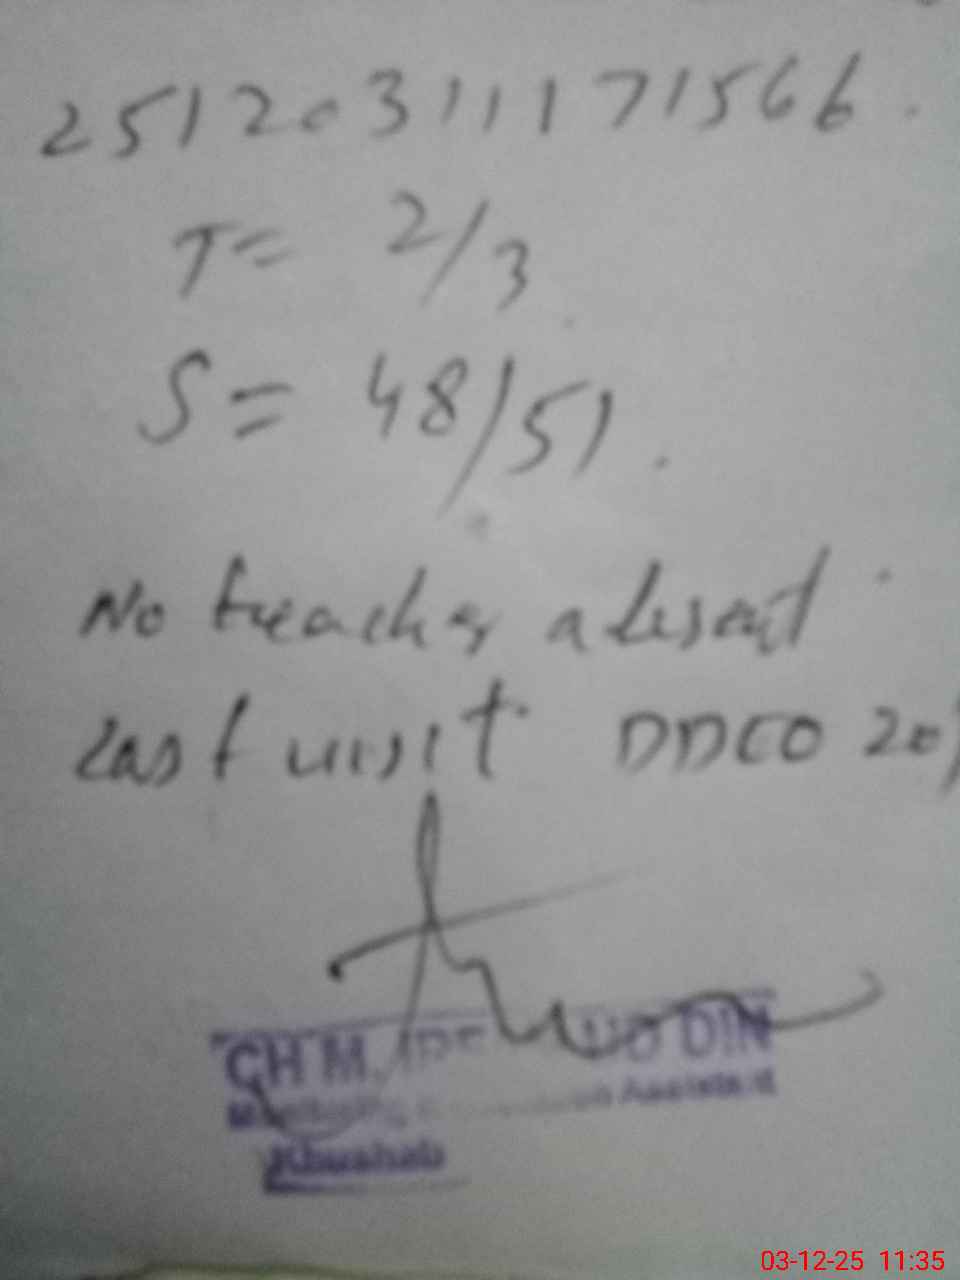 251203111171566.
T= 2/3
S= 48/51.
No treacher absent
Last visit DDEO 20/
CH M.
DIN
Assistant
Khushab
03-12-25 11:35